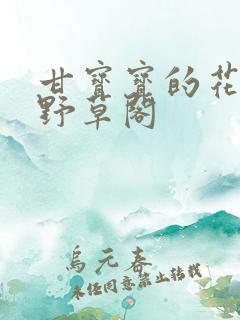 甘寳寳的花
野草閣
烏元春
未經同意禁止轉載